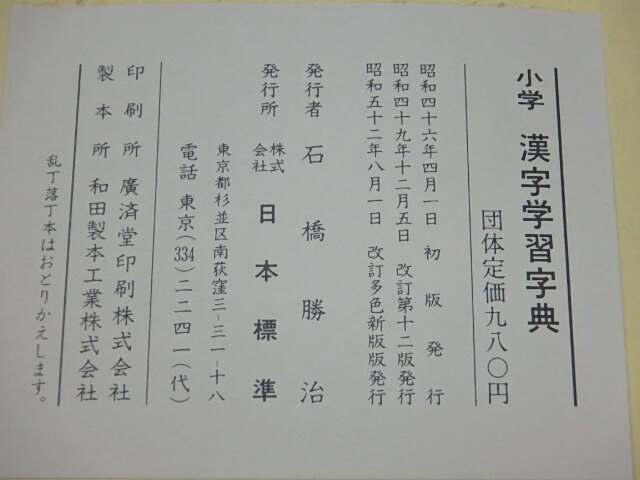 小学 漢字学習字典
団体定価九八〇円
昭和四十六年四月一日 初版発行
昭和四十九年十二月五日 改訂第十二版発行
昭和五十二年八月一日 改訂多色新版版発行
発行者 石橋勝治
発行所 株式会社 日本標準
東京都杉並区南荻窪三−三一−十八
電話 東京(334)二二四一(代)
印刷所 廣済堂印刷株式会社
製本所 和田製本工業株式会社
乱丁落丁本はおとりかえします。